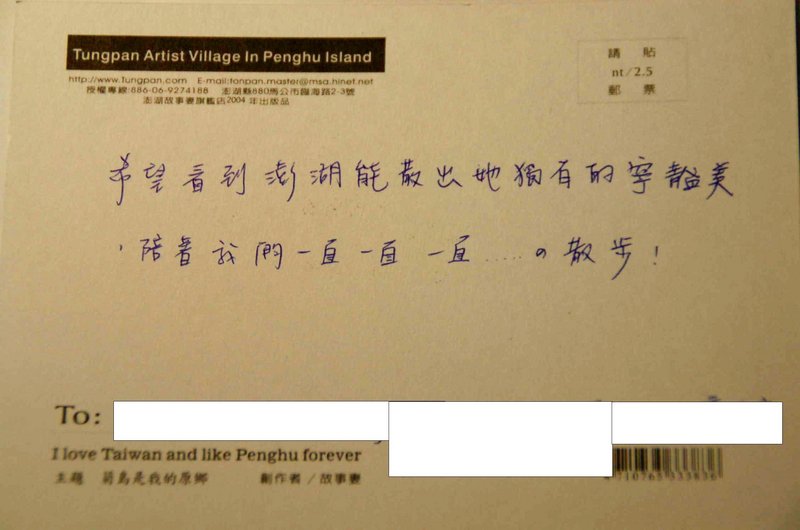 Tungpan Artist Village In Penghu Island
http://www.Tungpan.com E-mail:tanpan.master@msa.hinet.net
授權專線:886-06-9274188 澎湖縣880馬公市臨海路2-3號
澎湖故事妻旗艦店2004年出版品
請貼
nt/2.5
郵票
希望看到澎湖能散出她獨有的寧靜美
,陪著我們一直一直一直......の散步!
To:
I love Taiwan and like Penghu forever
主題 菊島是我的原鄉 創作者/故事妻
4710765333836